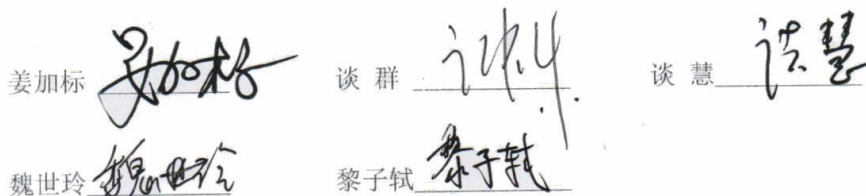 姜加标 姜加标 谈 群 谈 慧 谈慧
魏世玲 魏世玲 黎子轼 黎子轼